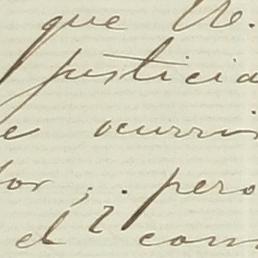 que V.
justicia
e ocurri
for, . pero
el com